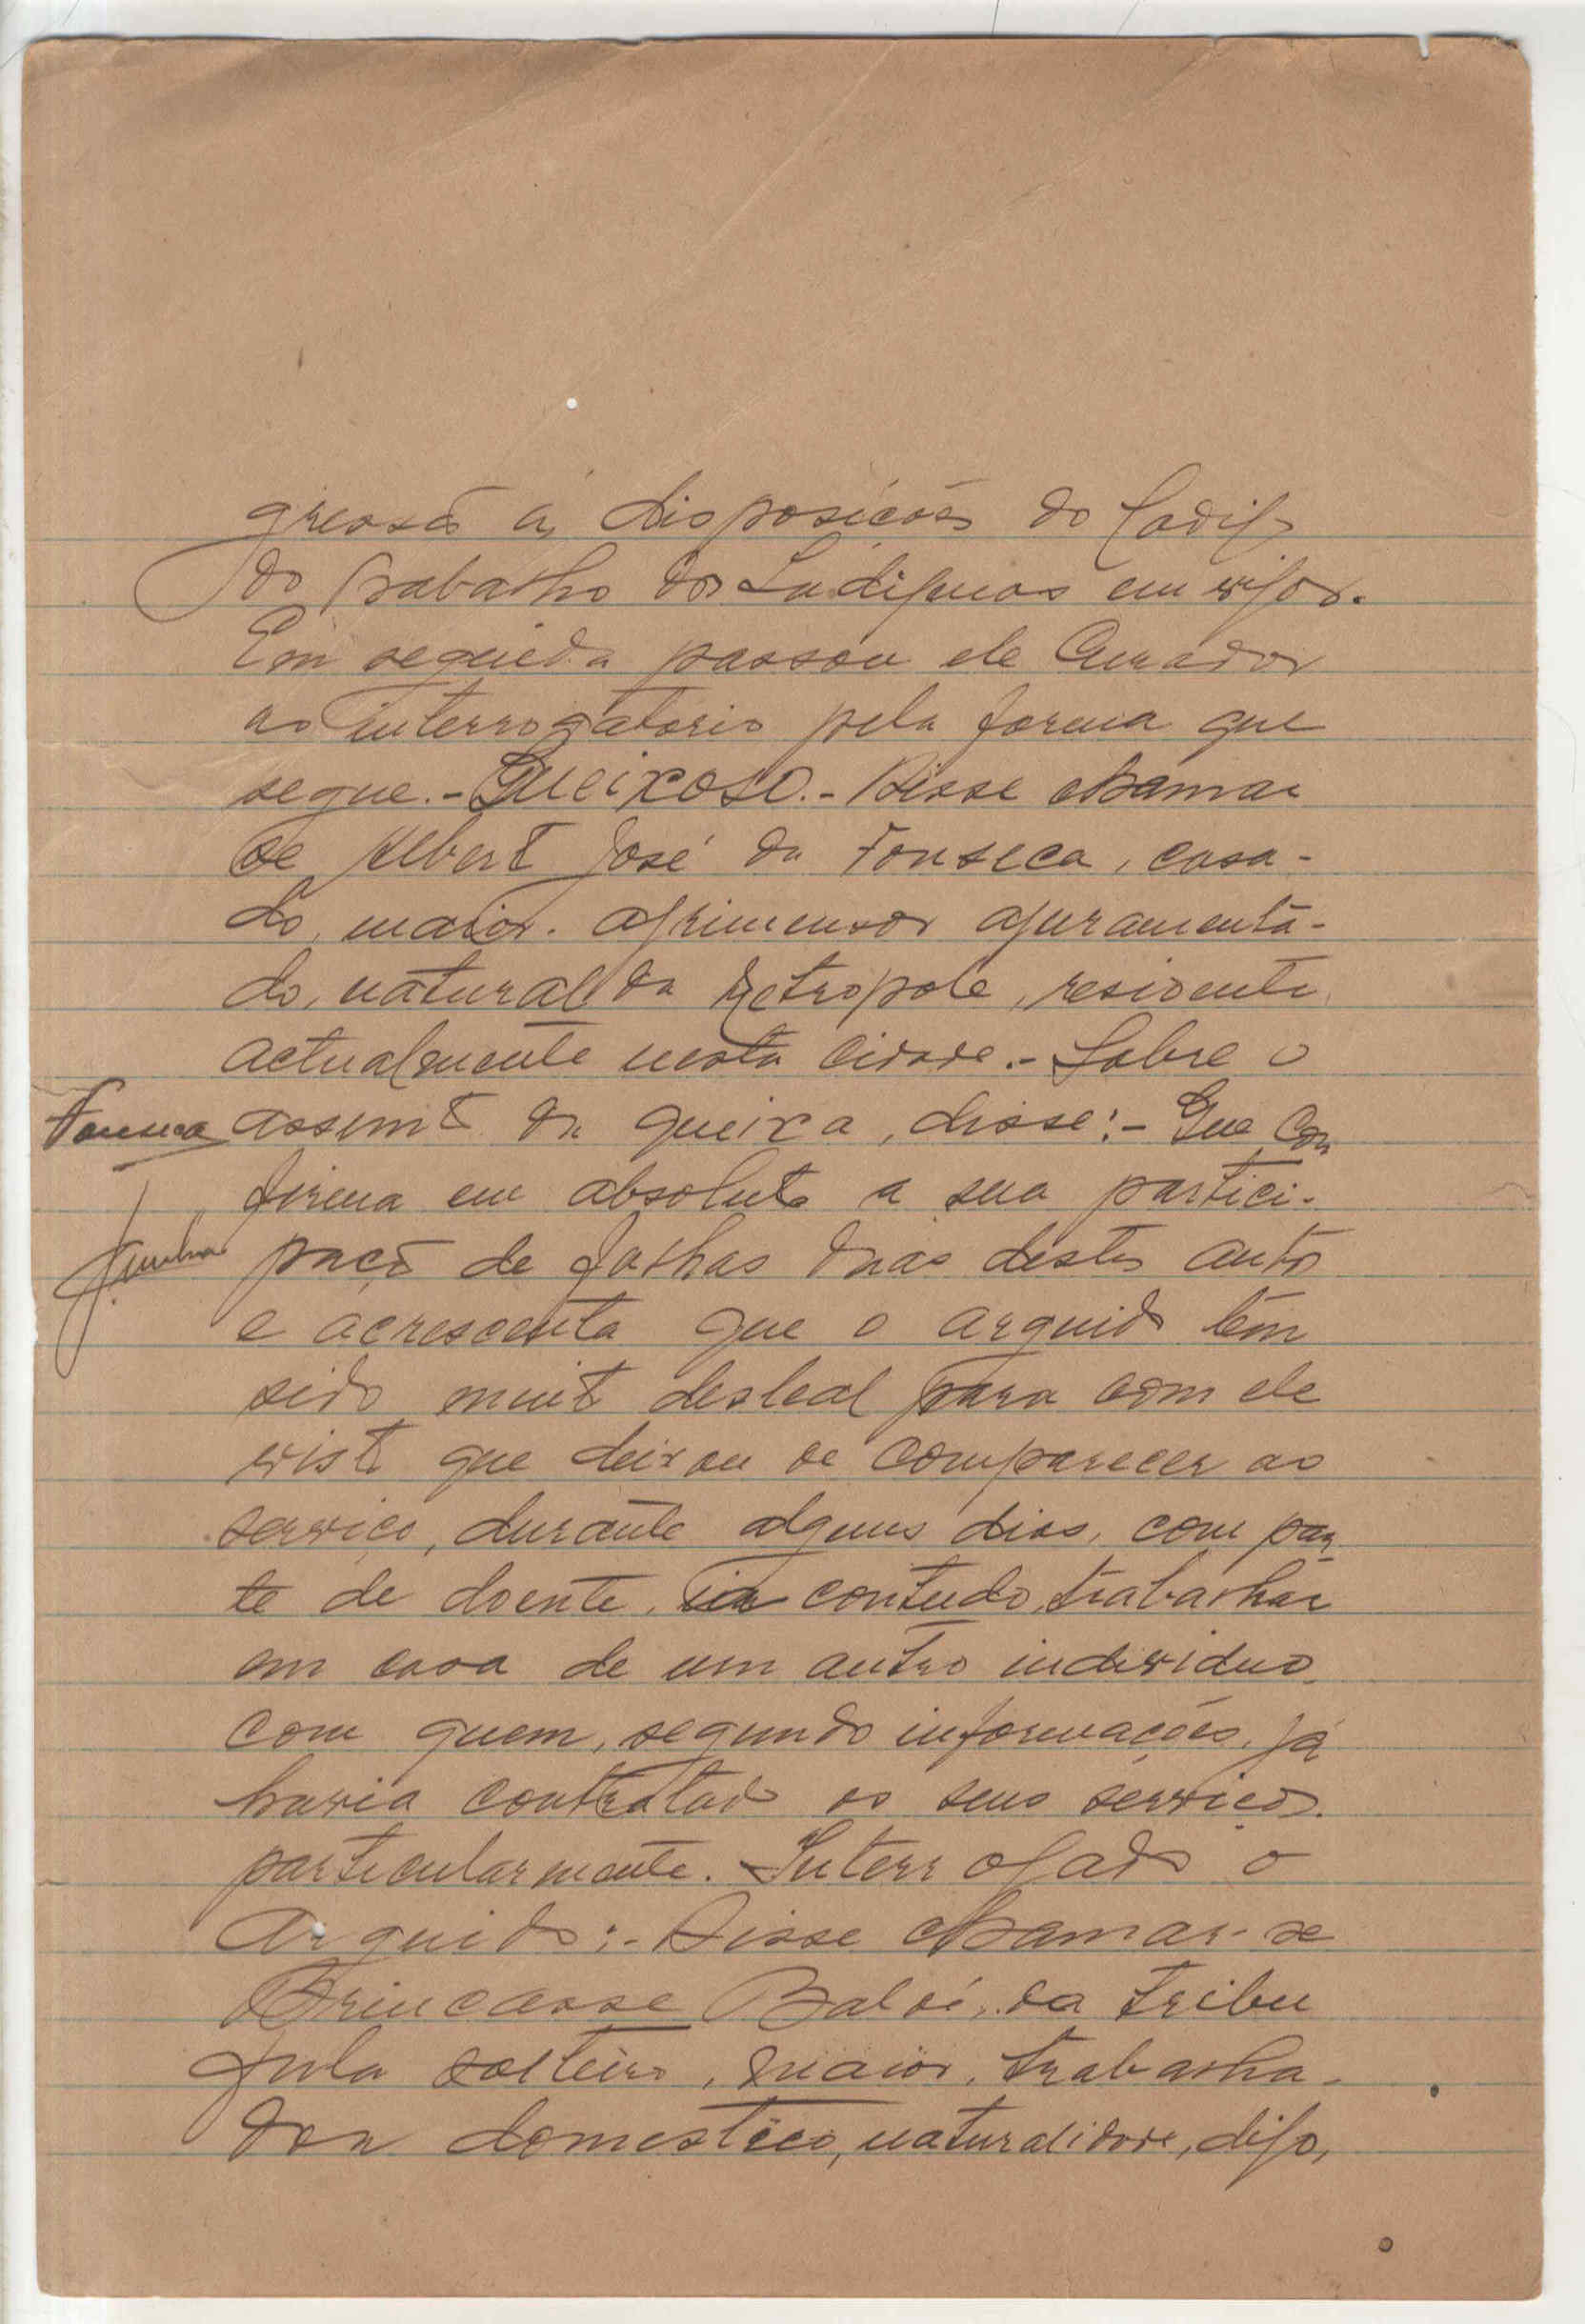 gressão ás disposições do Codigo
do trabalho dos Indigenas em vigor.
Em seguida passou ele Curador
ao interrogatorio pela forma que
segue.- Queixoso.- Disse chamar
se Albert José da Fonseca, casa-
do, maior. agrimensor ajuramenta-
do, natural da Metropole, residente,
actualmente nesta Cidade.- Sobre o
Fonseca assunto da queixa, disse:- Que Con
firma em absoluto a sua partici-
pação de folhas duas destes auto
e acrescenta que o arguido têm
sido muito desleal para com ele
visto que deixou de comparecer ao
serviço, durante alguns dias, com par
te de doente, ia contudo, trabalhar
em casa de um outro individuo
com quem, segundo informações, já
havia contratado os seus serviços.
particularmente. Interrogado o
Arguido:- Disse chamar-se
Brincasse Baldé, da tribu
fula solteiro, maior, trabalha-
dor domestico, naturalidade, digo,